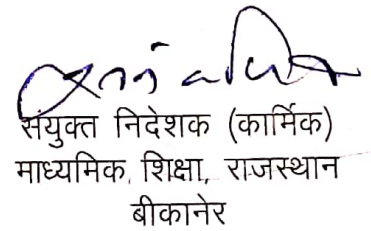 संयुक्त निदेशक (कार्मिक)
माध्यमिक, शिक्षा, राजस्थान
बीकानेर